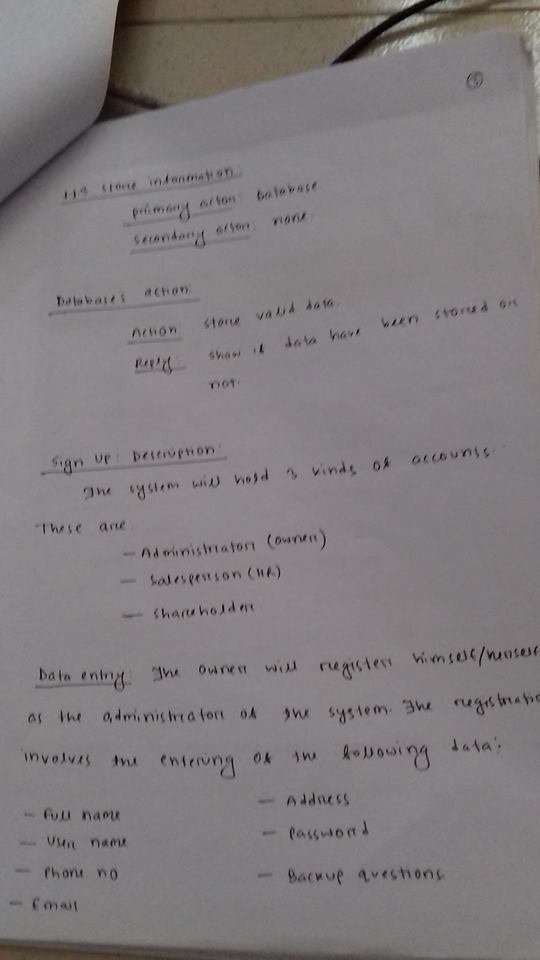 5
1.1.3 Store information:
Primary actor: Database
Secondary actor: none.
Database's action:
Action: Store valid data.
Reply: Show if data have been stored or
not.
Sign Up: Description:
The system will hold 3 kinds of accounts.
These are.
— Administrator (owner)
— Salesperson (HR)
— Shareholder
Data entry: The owner will register himself/herself
as the administrator of the system. The registratio
involves the entering of the following data:
— Full name
— User name
— Phone no
— Email
— Address
— Password
— Backup questions